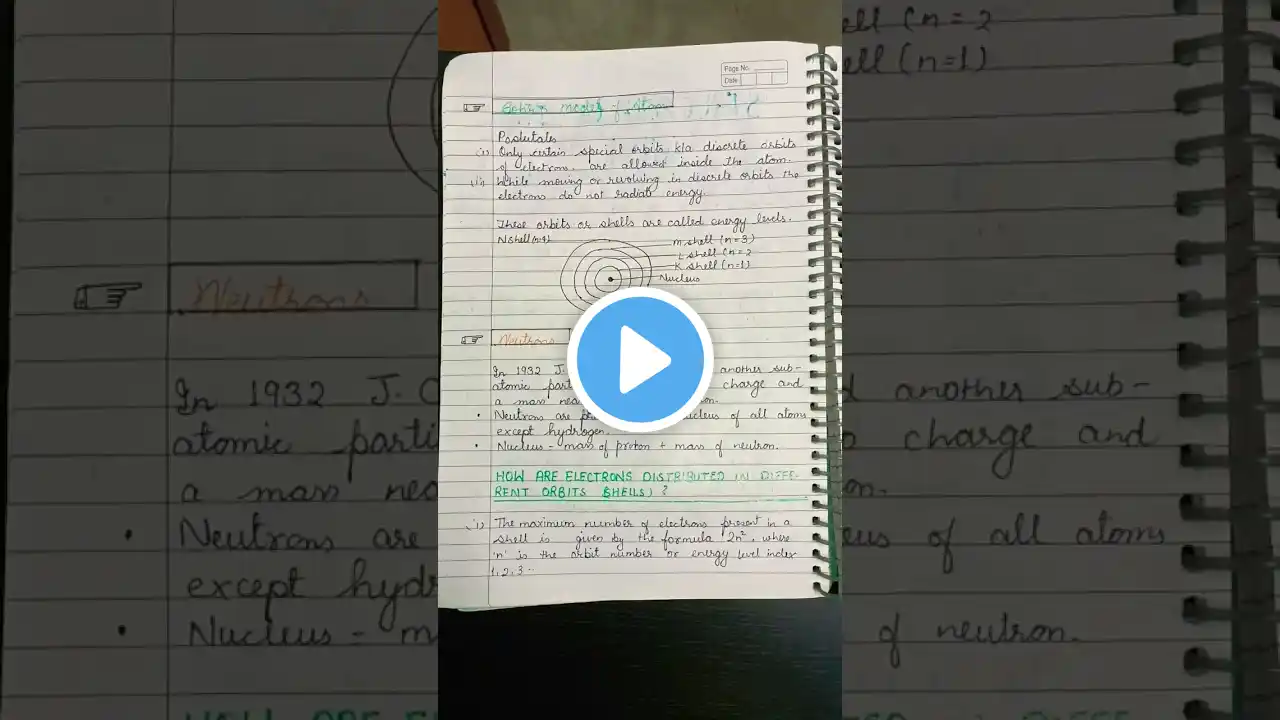 Page No.
Date
model of Atom
Postulates
(i) Only certain special orbits k/a discrete orbits
of electron, are allowed inside the atom.
(ii) While moving or revolving in discrete orbits the
electrons do not radiate energy.
These orbits or shells are called energy levels.
N shell (n=4)
M shell (n=3)
L shell (n=2
K shell (n=1)
Nucleus
Neutrons
In 1932 J. another sub-
atomic part charge and
a mass nea on.
• Neutrons are nucleus of all atoms
except hydrogen.
• Nucleus = mass of proton + mass of neutron.
HOW ARE ELECTRONS DISTRIBUTED IN DIFFE-
RENT ORBITS (SHELLS) ?
(i) The maximum number of electrons present in a
shell is given by the formula 2n², where
'n' is the orbit number or energy level index
1, 2, 3 --
ell (n=2
ell (n=1)
Neutrons
In 1932 J. C another sub-
atomic parti charge and
a mass nea on.
• Neutrons are eus of all atoms
except hydr
• Nucleus = m of neutron.